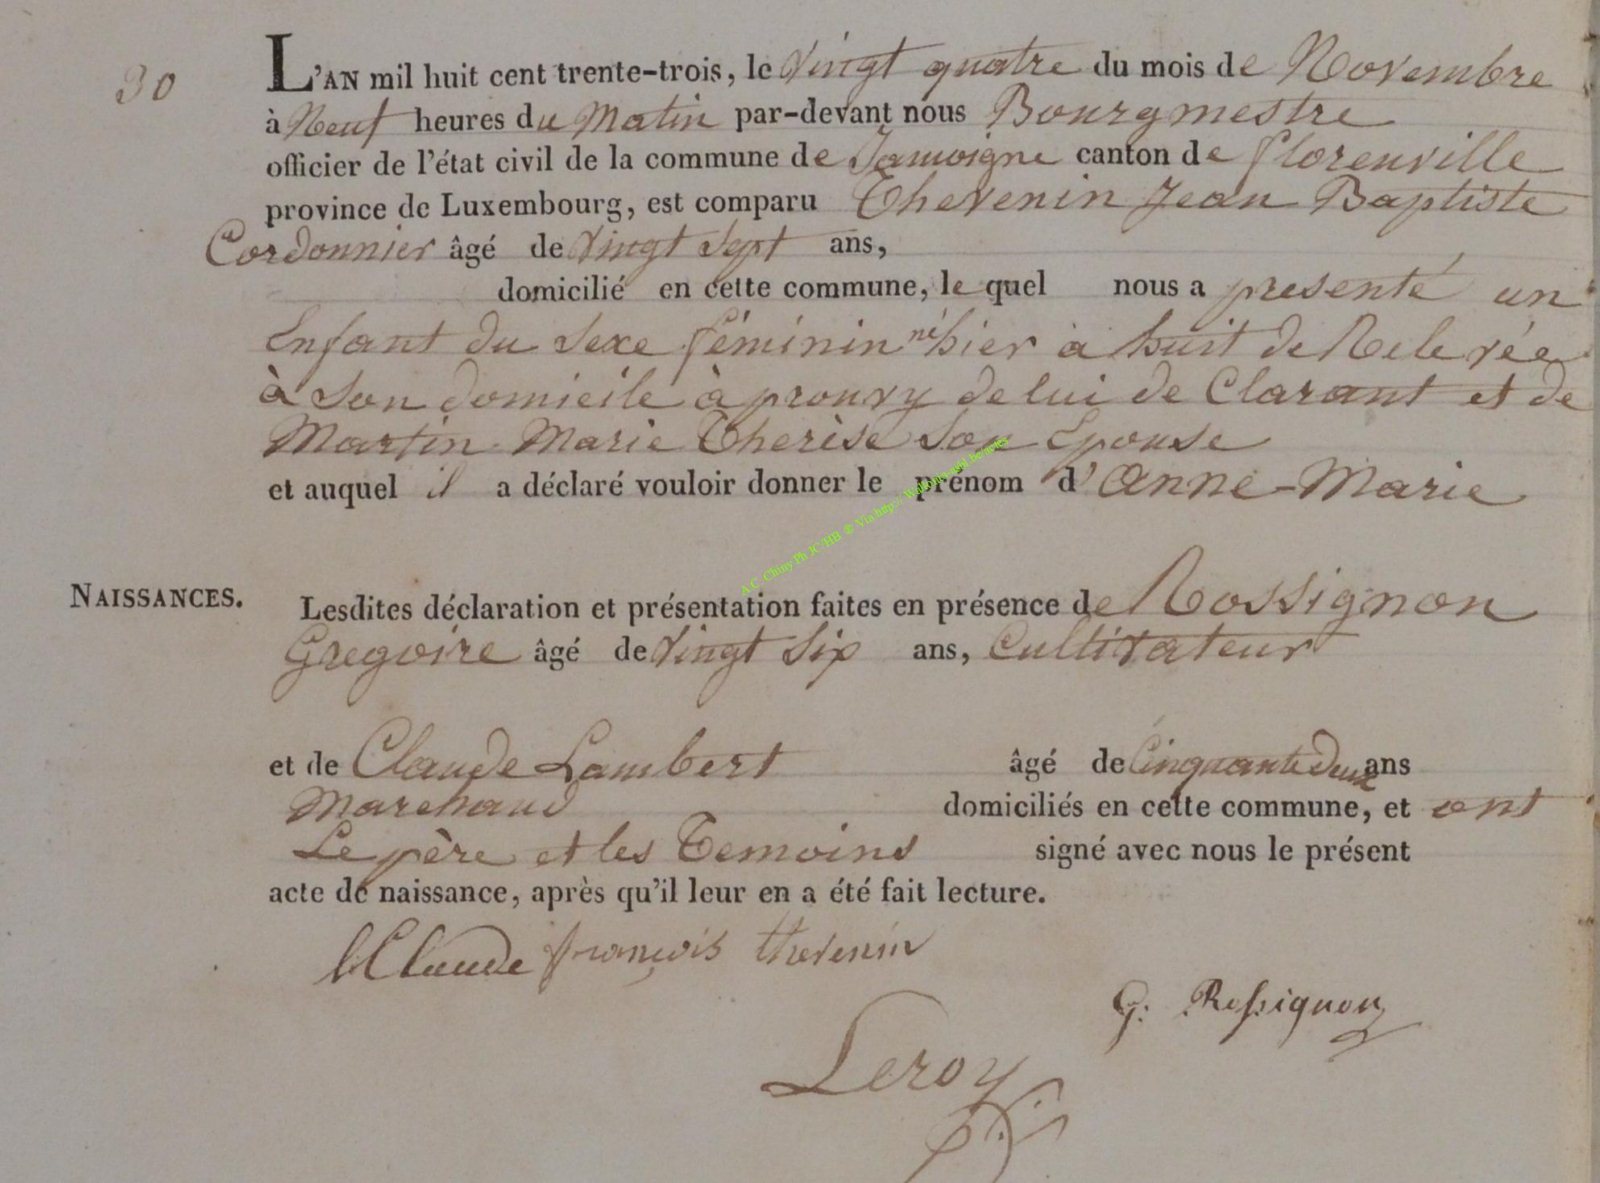 30
L'AN mil huit cent trente-trois, le vingt quatre du mois de Novembre
à Neuf heures du Matin par-devant nous Bourgmestre
officier de l'état civil de la commune de Jamoigne canton de florenville
province de Luxembourg, est comparu Thevenin Jean Baptiste
Cordonnier âgé de vingt Sept ans,
domicilié en cette commune, le quel nous a presenté un
Enfant du Sexe féminin né hier à huit de Relevée
à Son domicile à prouvy de lui de Clarant et de
Martin Marie Therèse Son Epouse
et auquel il a déclaré vouloir donner le prénom d'Anne-Marie
NAISSANCES.
Lesdites déclaration et présentation faites en présence de Rossignon
Gregoire âgé de vingt Six ans, Cultivateur
et de Claude Lambert âgé de Cinquante deux ans
Marchand domiciliés en cette commune, et ont
Le père et les Temoins signé avec nous le présent
acte de naissance, après qu'il leur en a été fait lecture.
l Claude françois thevenin
G: Rossignon
Leroy
A C Chiny Ph JC HB © Via